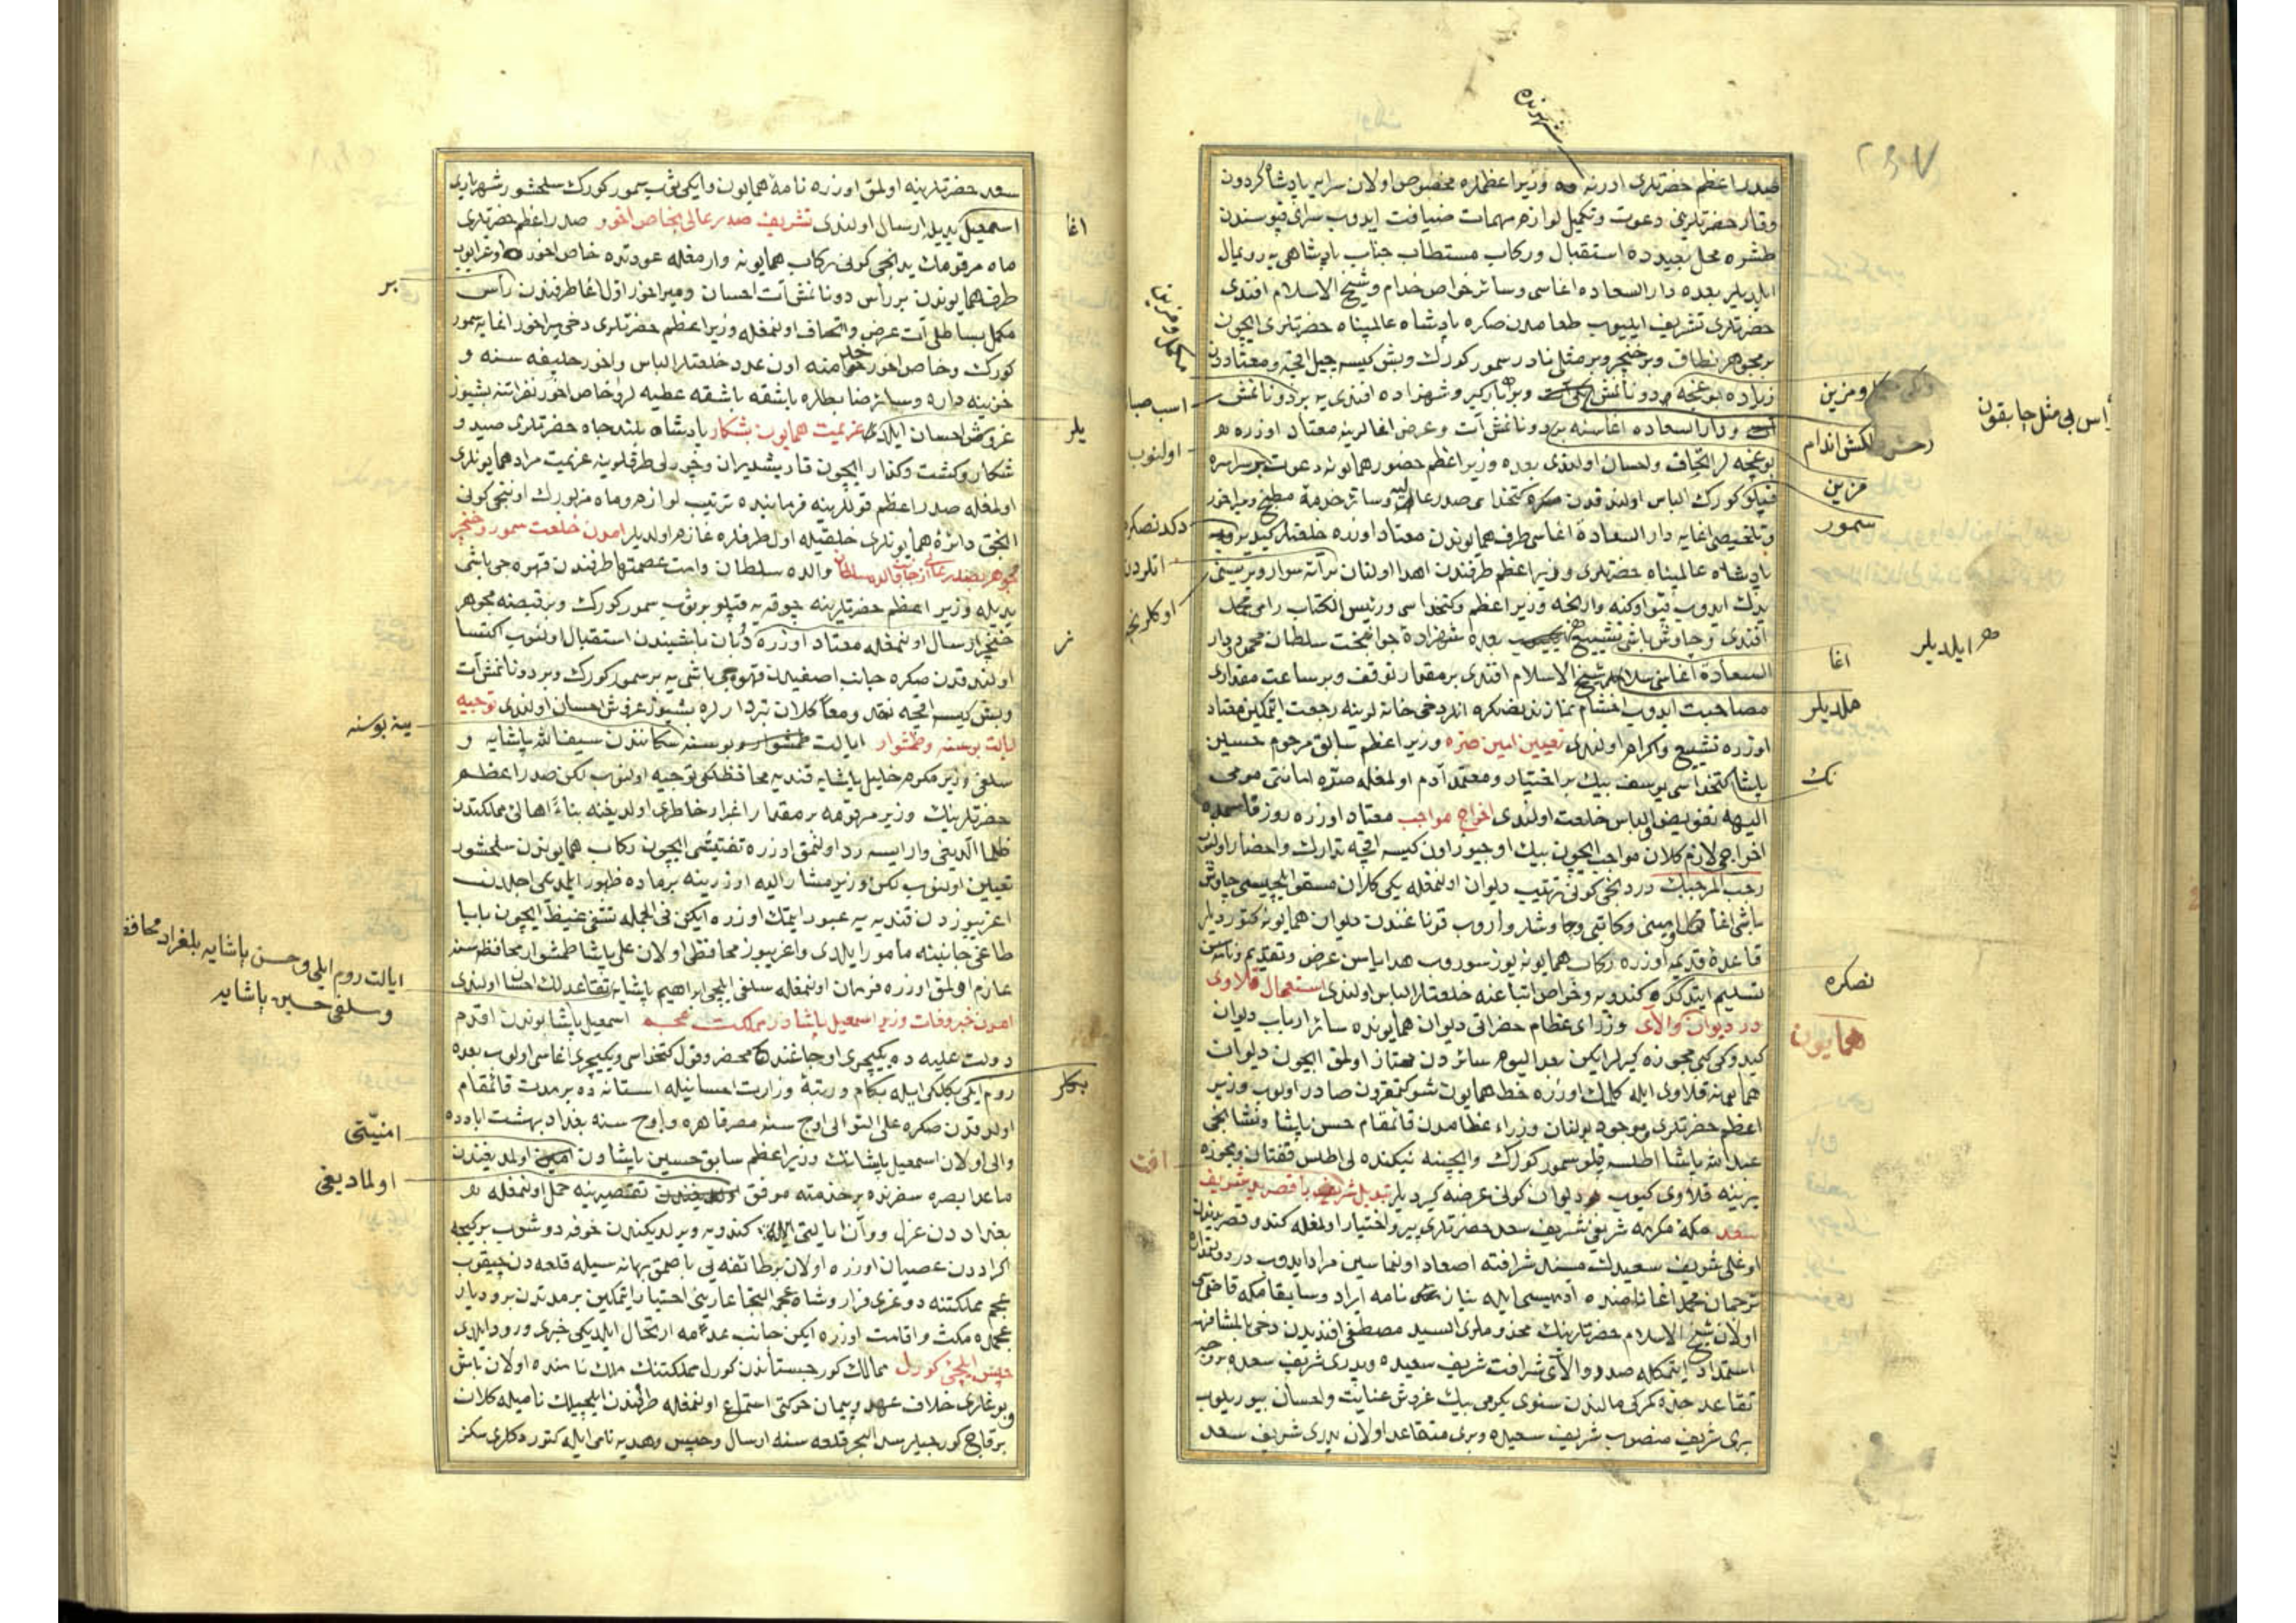 صدر اعظم حضرتلری ادرنه ده وزیر اعظملره مخصوص اولان سرایه پادشاه کردون
وقار حضرتلرینی دعوت وتکمیل لوازم مهمات ضیافت ایدوب سرای قپوسندن
طشره محل بعیدده استقبال ورکاب مستطاب جناب پادشاهی یه رویمال
ایلدیلر بعده دار السعاده اغاسی وسائر خواص خدام وشیخ الاسلام افندی
حضرتلری تشریف ایلیوب طعامدن صکره پادشاه عالمپناه حضرتلری ایچون
بر مجوهر نطاق وبر خنجر وبر مثلی نادر سمور کورک وبش کیسه جیل اقچه ومعتاددن
زیاده بوغچه ودونانمش وبر بارکیر وشهزاده افندی یه بر دونانمش
ودار السعاده اغاسنه بر دونانمش آت وعرض اغالرینه معتاد اوزره
بوغچه لر اتحاف واحسان اولندی بعده وزیر اعظم حضور همایونه دعوت سراسره
قپلو کورک الباس اولندقدن کتخدای صدر عالی یه وسائر خدمه مطبخ ومیراخور
وتلخیصی اغایه دار السعادة اغاسی طرف همایوندن معتاد اوزره خلعتلر کیدیروب
پادشاه عالمپناه حضرتلری وزیر اعظم طرفندن اهدا اولنان آته سوار
یدک ایدوب قپو اوکنه وارنجه وزیر اعظم وکتخداسی ورئیس الکتاب رامی محمد
افندی وچاوش باشی تشییع بعده شهزاده جوانبخت سلطان محمود ودار
السعاده اغاسی شیخ الاسلام افندی بر مقدار توقف وبر ساعت مقداری
مصاحبت ایدوب اخشام نمازندنصکره انلر دخی خانه لرینه رجعت ایتمکین معتاد
اوزره تشییع واکرام اولندی تعیین امین صره وزیر اعظم سابق مرحوم حسین
پاشا کتخداسی یوسف بیک بر اختیار ومعتمد آدم اولمغله صره امانتی مومی
الیهه تفویض والباس خلعت اولندی اخراج مواجب معتاد اوزره روز قاسمده
اخراجی لازم کلان مواجب ایچون بیک اوچیوز اون کیسه اقچه تدارک واحضار اولنوب
رجب المرجبک دردنجی کونی ترتیب دیوان اولنمغله یکی کلان مسقو ایلچیسی چاوش
باشی اغا وامینی وکاتبی وچاوشلر واروب قوناغندن دیوان همایونه کتوردیلر
قاعده قدیمه اوزره رکاب همایونه یوز سوروب هدایاسن عرض وتقدیم ونامه سن
تسلیم ایتدکده کندویه وخواص اتباعنه خلعتلر الباس اولندی استعمال قلاوی
در دیوان والای وزرای عظام حضراتی دیوان همایونده سائر ارباب دیوان
کبی مجوزه کیرلر ایکن بعد الیوم سائردن ممتاز اولمق ایچون دیوان
همایونه قلاوی ایله کلمک اوزره خط همایون شوکتمقرون صادر اولوب وزیر
اعظم حضرتلری وموجود بولنان وزراء عظامدن قائمقام حسن پاشا ونشانجی
عبد الله پاشا اطلسه قپلو سمور کورک وایچینه نیکنده لی اطلس قفتان ومجوزه
یرینه قلاوی کیوب دیوان کونی عرضه کیردیلر تبدیل شریف با قصر ید شریف
سعد مکه مکرمه شریفی شریف سعد حضرتلری پیر واختیار اولمغله کندو قصر یدندن
اوغلی شریف سعیدک مسند شرافته اصعاد اولنماسین مراد ایدوب
ترجمان محمد اغا نام بنده ادمیسی ایله نیازنامه ایراد وسابقا مکه قاضیسی
اولان شیخ الاسلام حضرتلرینک مخدوملری السید مصطفی افندیدن دخی بالمشافهه
استمداد ایتمکله صدر والای شرافت شریف سعیده وپدری شریف سعده
تقاعد جده کمرکی مالندن سنوی یکرمی بیک غروش عنایت واحسان بیوریلوب
بری شریف منصوب شریف سعیده وبری متقاعد اولان پدری شریف سعد
شهرنده
ومزین
مزین
سمور
اغا
ایلدیلر
نک
نصکره
همایون
اولنوب
افت
سعد حضرتلرینه اولمق اوزره نامه همایون وایکی ثوب سمور کورک سلحشور شهریاری
اسمعیل یدیله ارسال اولندی تشریف صدر عالی بخاص اخور صدر اعظم حضرتلری
ماه مرقومک یدنجی کونی رکاب همایونه وارمغله عودتده خاص اخوره اوغرایوب
طرف همایوندن بر رأس دونانمش آت احسان ومیراخور اول اغا طرفندن رأس
مکمل بساطلی آت عرض واتحاف اولنمغله وزیر اعظم حضرتلری دخی میراخور اغایه سمور
کورک وخاص اخور خدامنه اون عدد خلعتلر الباس واخور خلیفه سنه و
خزینه داره وسائر ضابطلره باشقه باشقه عطیه لر وخاص اخور نفراتنه بشیوز
غروش احسان ایلدی عزیمت همایون بشکار پادشاه بلند جاه حضرتلری صید و
شکار وکشت وکذار ایچون قادیشدیران وچورلی طرفلرینه عزیمت مراد همایونلری
اولمغله صدر اعظم قوللرینه فرماننده ترتیب لوازم وماه مزبورک اوننجی کونی
الحق دائره همایونلری خلقیله اول طرفلره عازم اولدیلر امدن خلعت سمور وخنجر
مجوهر بصدر عالی از جانب والده سلطان والده سلطان دامت عصمتها طرفندن قهوه جی باشی
یدیله وزیر اعظم حضرتلرینه چوقه یه قپلو بر ثوب سمور کورک وبر قبضه مجوهر
خنجر ارسال اولنمغله معتاد اوزره دیوان باشیندن استقبال اولنوب اکتسا
اولندقدن صکره جانب اصفیدن قهوه جی باشی یه بر سمور کورک وبر دونانمش آت
وبش کیسه اقچه نقد ومعا کلان تبردارلره بشیوز غروش احسان اولندی توجیه
ایالت بوسنه وطمشوار ایالت بوسنه سیف الله پاشایه و
سلفی وزیر مکرم خلیل پاشایه قندیه محافظلکی توجیه اولنوب لکن صدر اعظم
حضرتلرینک وزیر مرقومه بر مقدار اغبرار خاطری اولدیغنه بناءً اهالئ مملکتدن
ظلما الدیغی وار ایسه رد اولنمق اوزره تفتیشی ایچون رکاب همایوندن سلحشور
تعیین اولنوب لکن وزیر مشار الیه اوزرینه بر ماده ظهور ایلمدی اجلدن
اغریبوزدن قندیه یه عبور ایتمک اوزره ایکن فی الجمله تشفی غیظ ایچون بابا
طاغی جانبنه مامور ایلدی واغریبوز محافظی اولان علی پاشا طمشوار محافظه سنه
عازم اولمق اوزره فرمان اولنمغله سلفی ایلچی ابراهیم پاشایه تقاعدلک احسان اولندی
امدن خبر وفات وزیر اسمعیل پاشا در مملکت عجم اسمعیل پاشا بوندن اقدم
دولت علیه ده یکیچری اوجاغنده محضر وقول کتخداسی ویکیچری اغاسی اولوب بعده
روم ایلی بکلربکلکی ایله بکام ورتبه وزارت احسانیله استانه ده بر مدت قائمقام
اولدقدن صکره علی التوالی اوچ سنه مصر قاهره واوچ سنه بغداد بهشت اباده
والی اولان اسمعیل پاشانک وزیر اعظم سابق حسین پاشادن اولمدیغندن
ماعدا بصره سفرنده بر خدمته موفق تقصیرینه حمل اولنمغله
بغداددن عزل ووان ایالتی کندویه ویرلدیکندن خوفه دوشوب بر کیجه
اکراددن عصیان اوزره اولان بر طائفه یی باصمق بهانه سیله قلعه دن چیقوب
عجم مملکتنه دوغری فرار وشاه عجمه التجا عارینی اختیار ایتمکین بر مدتدن برو دیار
عجمده مکث واقامت اوزره ایکن جانب عدمه ارتحال ایلدیکی خبری ورود ایلدی
حبس ایلچئ کورل ممالک کورجستاندن کورل مملکتنک ملک نامنده اولان باش
بوغلری خلاف عهد وپیمان حرکتی استماع اولنمغله طرفندن ایلچیلک نامیله کلان
بر قاچ کورجیلر سد البحر قلعه سنه ارسال وحبس وهدیه نامی ایله کتوردکلری سکز
اغا
بر
یلر
ینه بوسنه
ایالت روم ایلی وحسن پاشایه بلغراد محافظ
وسلفی حسین پاشایه
بکلر
امنیتی
اولمادیغی